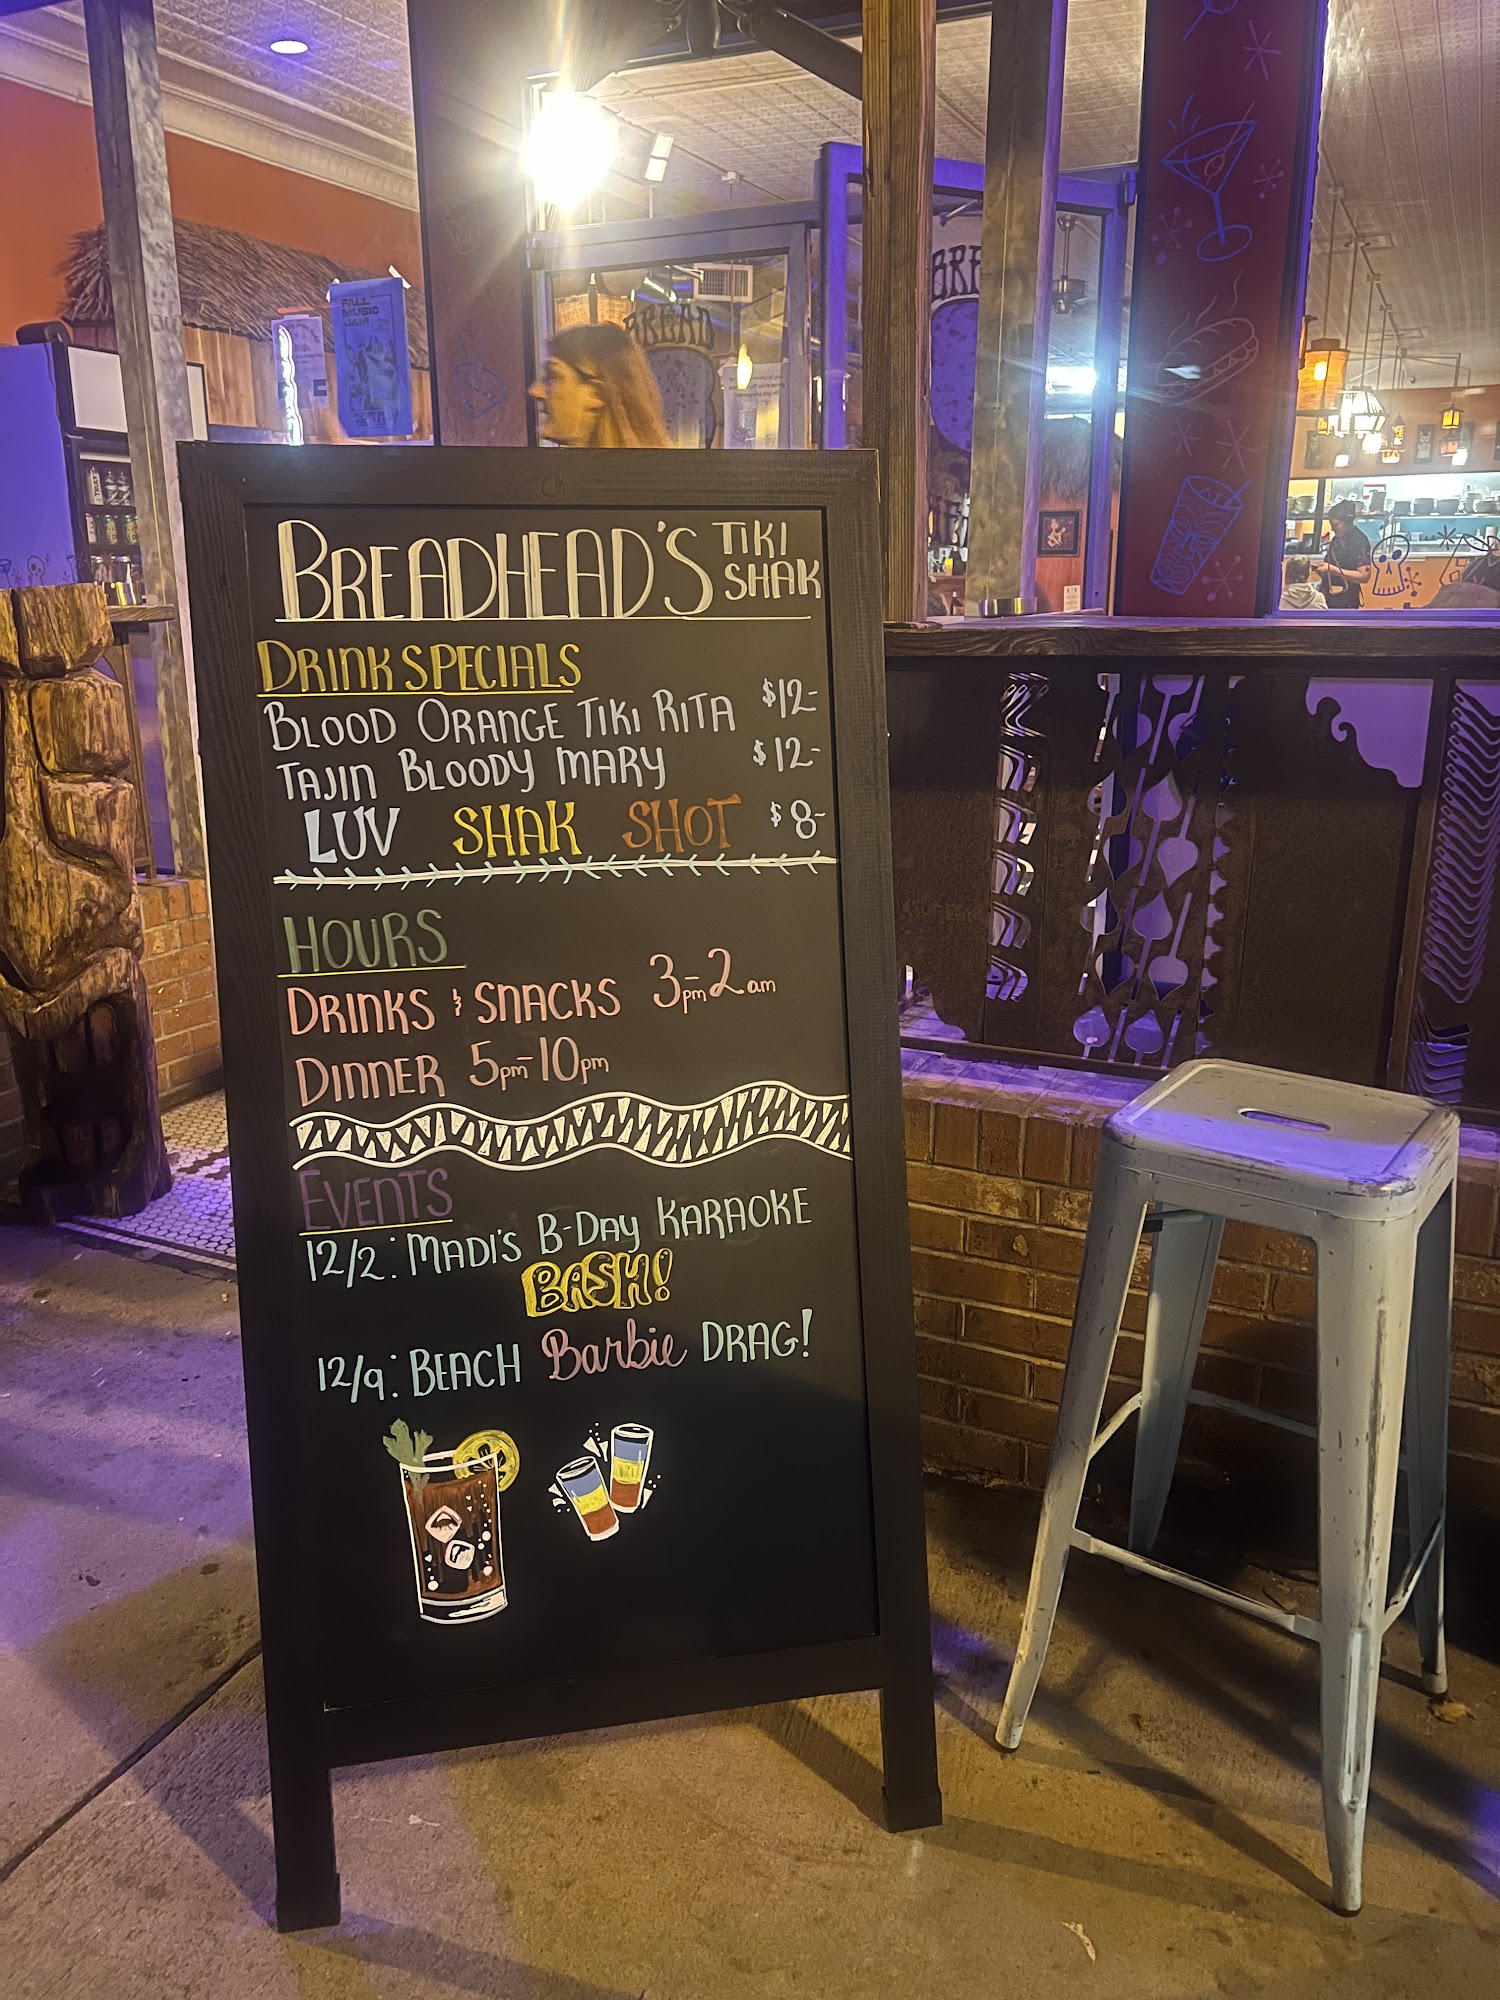 FALL
MUSIC
JAM
BREAD
BRE
BREADHEAD'S TIKI
SHAK
DRINK SPECIALS
BLOOD ORANGE TIKI RITA $12-
TAJIN BLOODY MARY $12-
LUV SHAK SHOT $8-
HOURS
DRINKS & SNACKS 3pm-2am
DINNER 5pm-10pm
EVENTS
12/2: MADI'S B-DAY KARAOKE
BASH!
12/9: BEACH Barbie DRAG!